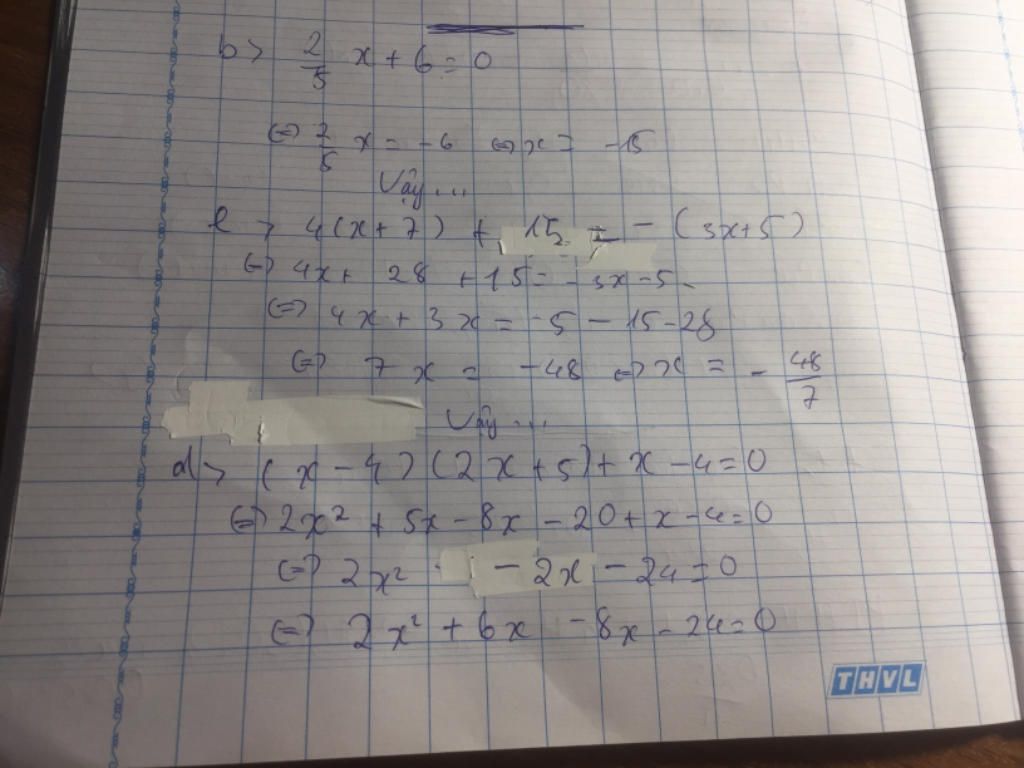 b> 2/5 x + 6 = 0
(=) 2/5 x = -6 (=) x = -15
Vậy...
c > 4(x+7) + 15 = - (3x+5)
(=) 4x + 28 + 15 = -3x - 5
(=) 4x + 3x = -5 - 15 - 28
(=) 7x = -48 (=) x = - 48/7
Vậy...
d > (x - 4)(2x + 5) + x - 4 = 0
(=) 2x² + 5x - 8x - 20 + x - 4 = 0
(=) 2x² - 2x - 24 = 0
(=) 2x² + 6x - 8x - 24 = 0
THVL